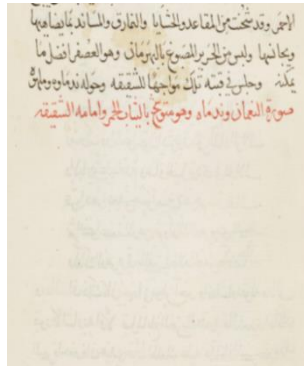 الاحمر وقد نتخب من المقاعد والحشايا والنمارق والمساند ما يضاهيها
ويجانسها ولبس من الحرير المصبوغ بالبهرمان وهو العصفر افضل ما
يمكنه وجلس في قبته تلك مواجها للشقيقه وحوله ندماوه وملهوه
صورة النعمان وندماه وهو متوج بالثياب الحمر وامامه الشقيقه